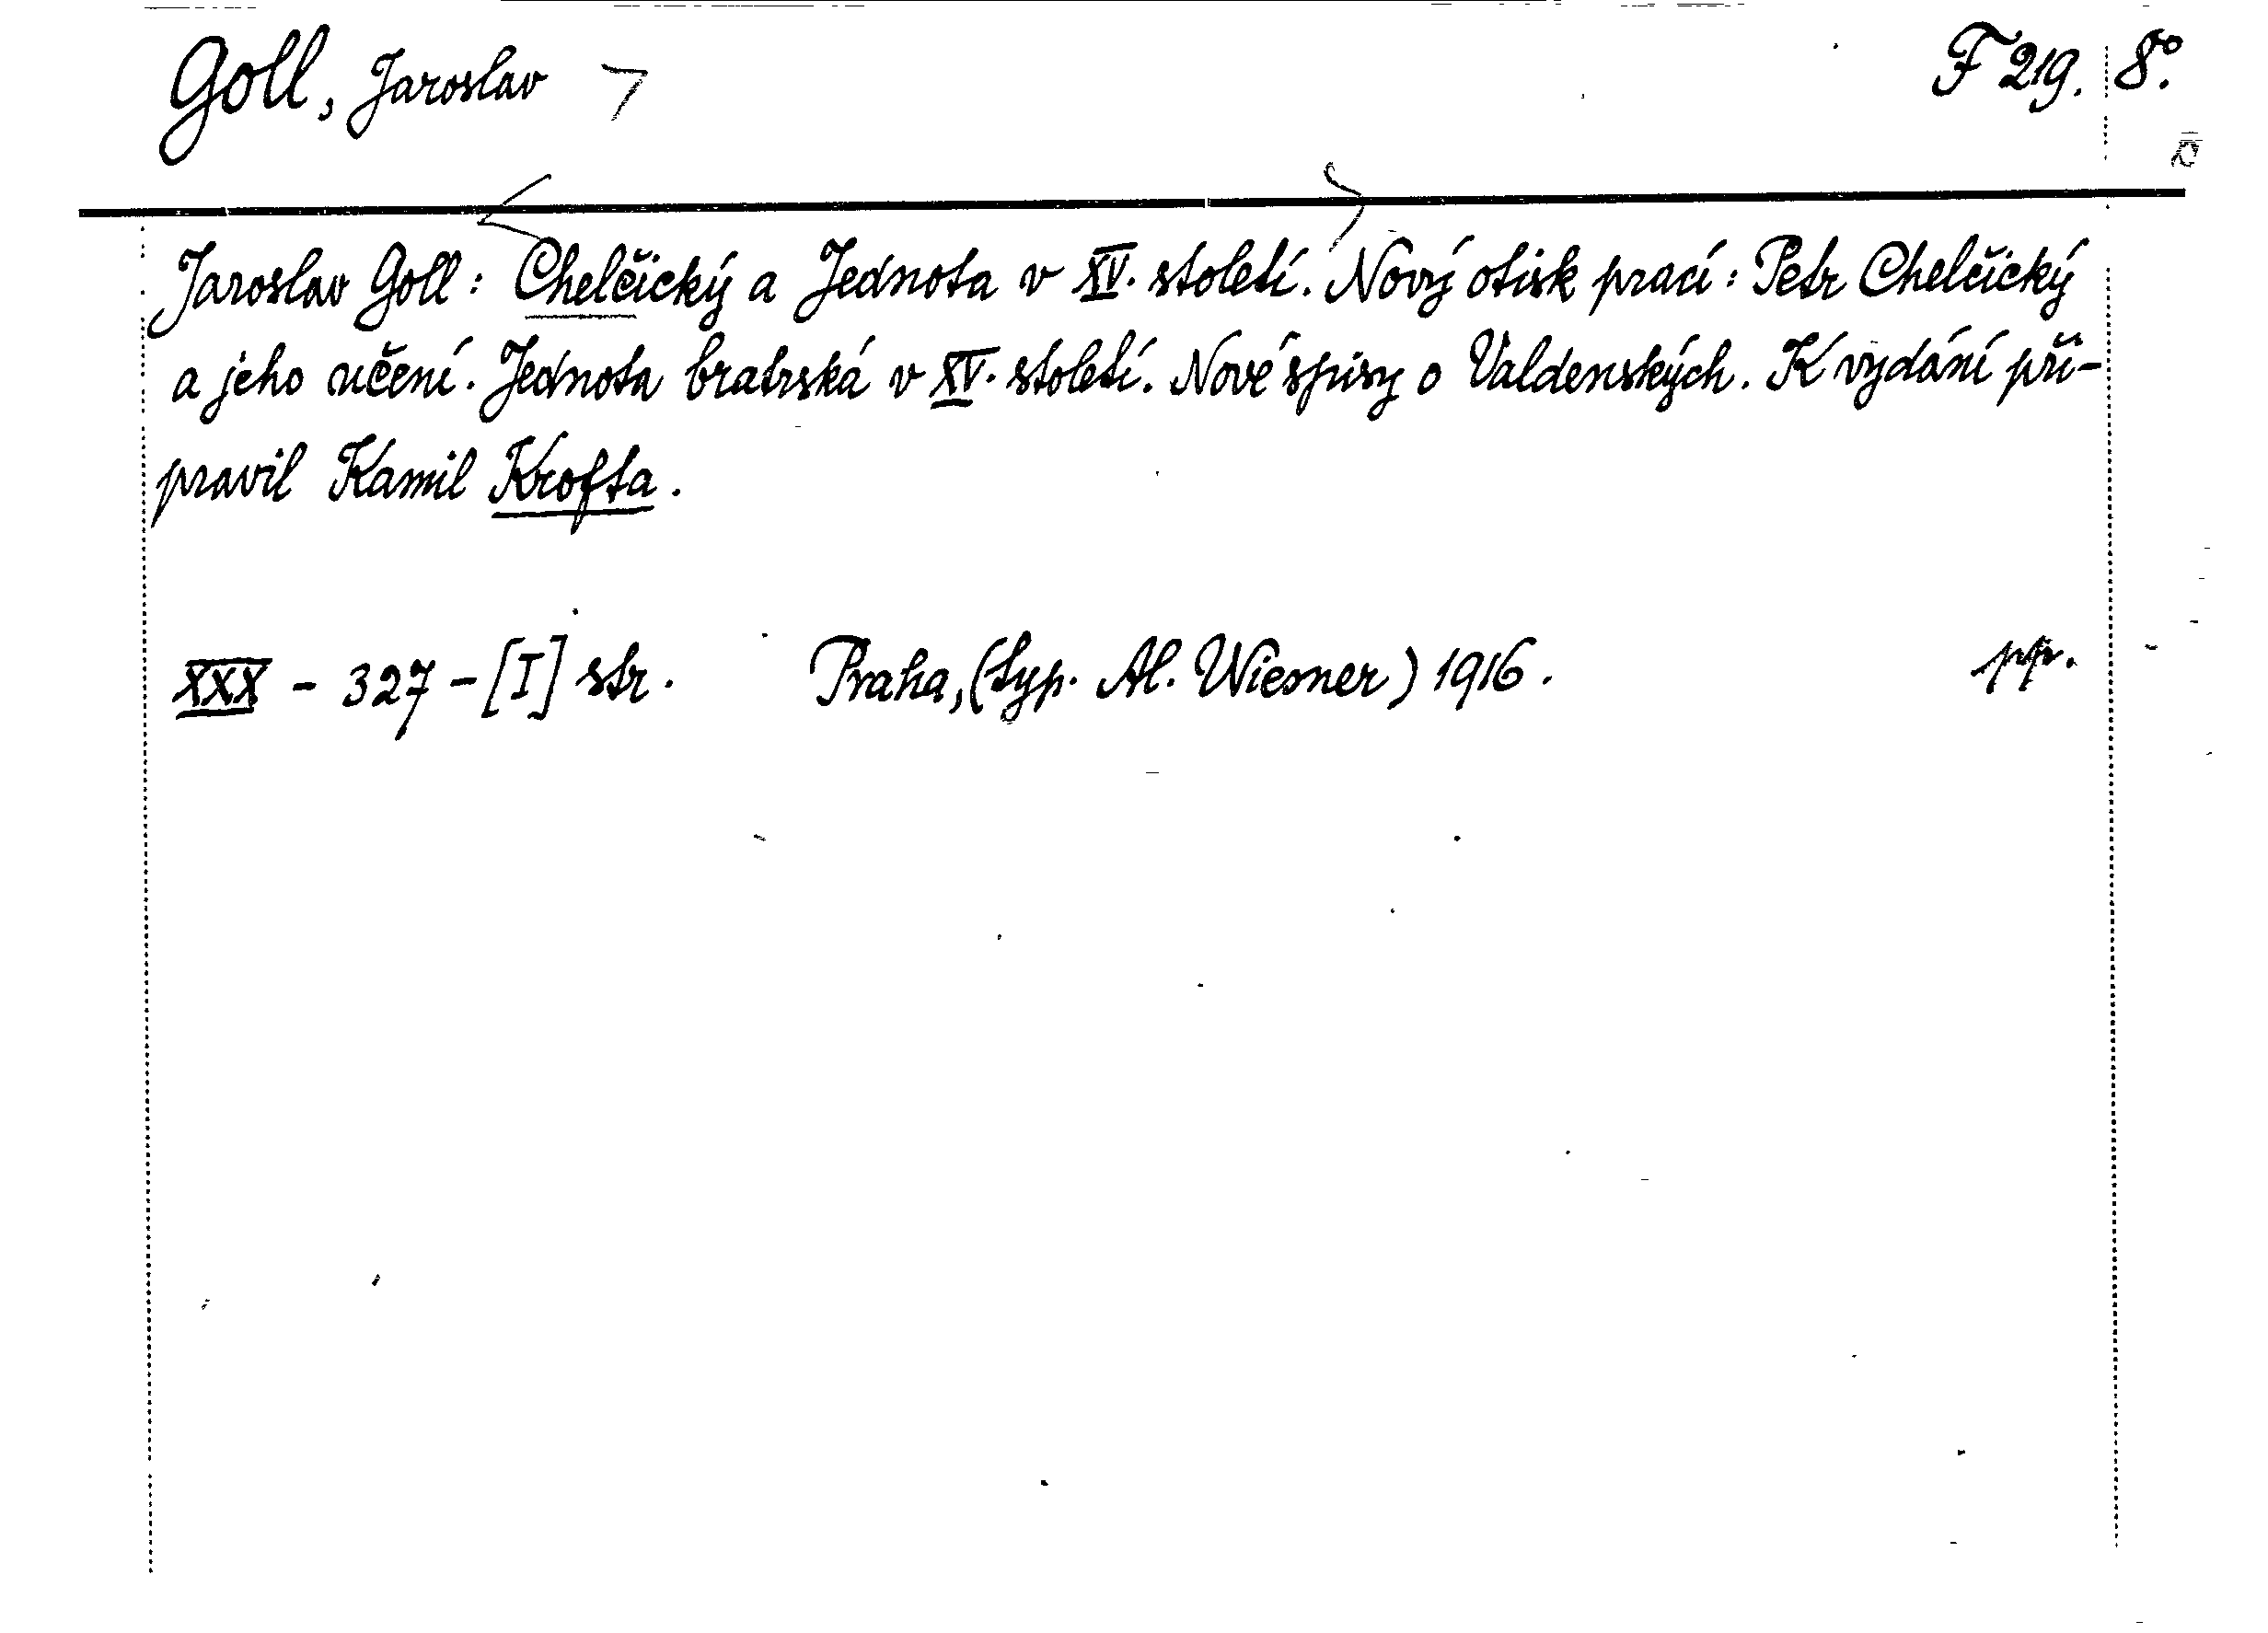 Goll, Jaroslav
F 219. 8°.
Jaroslav Goll: Chelčický a Jednota v XV. století. Nový otisk prací: Petr Chelčický
a jeho učení. Jednota bratrská v XV. století. Nové spisy o Valdenských. K vydání při-
pravil Kamil Krofta.
XXX - 327 - [I] str. Praha, (typ. Al. Wiesner) 1916. pp.